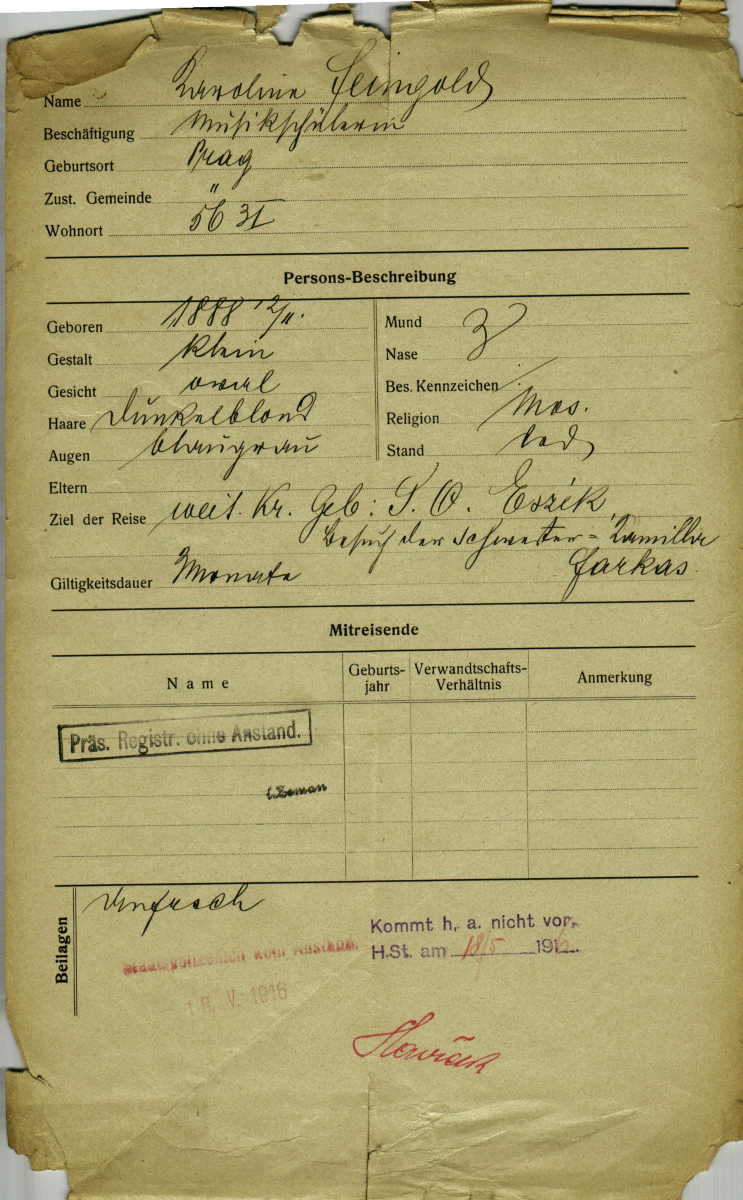 Name Karoline Feingold
Beschäftigung Musikschülerin
Geburtsort Prag
Zust. Gemeinde "
Wohnort 56 II
Persons-Beschreibung
Geboren 1888 12/11.
Gestalt klein
Gesicht oval
Haare dunkelblond
Augen blaugrau
Mund
Nase
Bes. Kennzeichen
Religion Mos.
Stand led
Eltern
Ziel der Reise weit. Kr. Geb: S. O. Eszék
Besuch der Schwester = Kamilla
Farkas
Giltigkeitsdauer Monate
Mitreisende
Name
Geburts-jahr
Verwandtschafts-Verhältnis
Anmerkung
Präs. Registr. ohne Anstand.
Beilagen
Kommt h. a. nicht vor.
H.St. am 18/5 1916.
Staatspolizeilich kein Anstand.
18. V. 1916